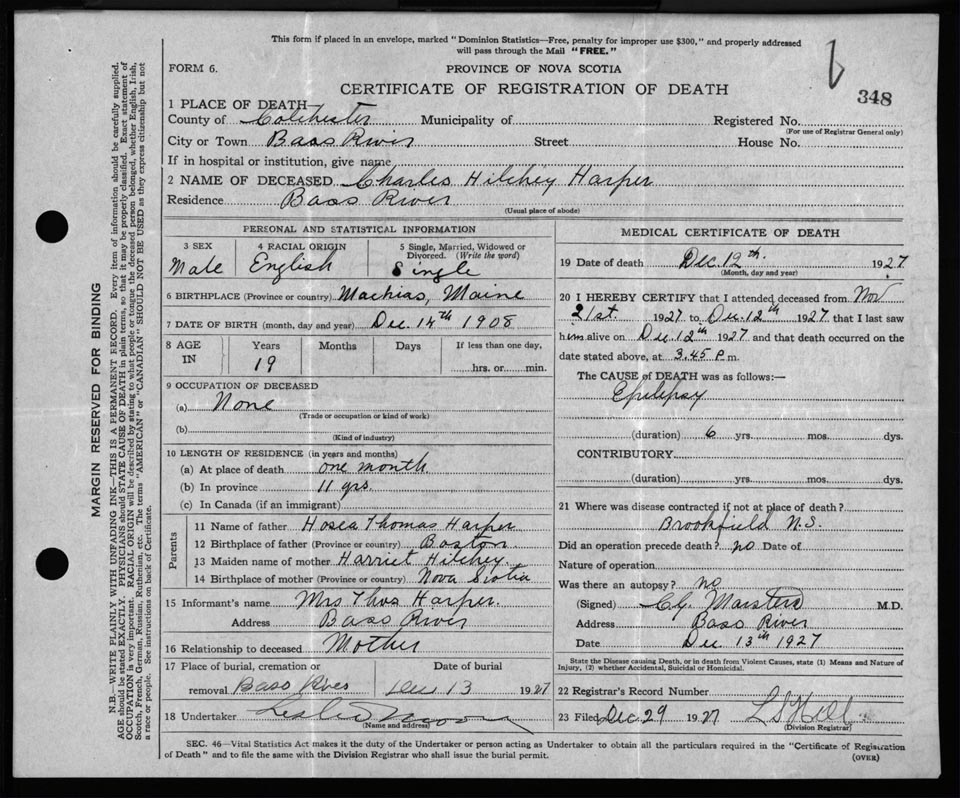 This form if placed in an envelope, marked "Dominion Statistics—Free, penalty for improper use $300," and properly addressed
will pass through the Mail "FREE."
FORM 6.
PROVINCE OF NOVA SCOTIA
CERTIFICATE OF REGISTRATION OF DEATH
348
1 PLACE OF DEATH
County of Colchester Municipality of Registered No.
(For use of Registrar General only)
City or Town Bass River Street House No.
If in hospital or institution, give name
2 NAME OF DECEASED Charles Hilchey Harper
Residence Bass River
(Usual place of abode)
PERSONAL AND STATISTICAL INFORMATION
3 SEX 4 RACIAL ORIGIN 5 Single, Married, Widowed or
Divorced. (Write the word)
Male English Single
6 BIRTHPLACE (Province or country) Machias, Maine
7 DATE OF BIRTH (month, day and year) Dec. 14th 1908
8 AGE Years Months Days If less than one day,
IN 19 hrs. or min.
9 OCCUPATION OF DECEASED
(a) None
(Trade or occupation or kind of work)
(b)
(Kind of industry)
10 LENGTH OF RESIDENCE (in years and months)
(a) At place of death one month
(b) In province 11 yrs.
(c) In Canada (if an immigrant)
Parents
11 Name of father Hosea Thomas Harper
12 Birthplace of father (Province or country) Boston
13 Maiden name of mother Harriet Hilchey.
14 Birthplace of mother (Province or country) Nova Scotia
15 Informant's name Mrs Thos Harper.
Address Bass River
16 Relationship to deceased Mother
17 Place of burial, cremation or Date of burial
removal Bass River Dec 13 1927
18 Undertaker Leslie
(Name and address)
MEDICAL CERTIFICATE OF DEATH
19 Date of death Dec. 12th. 1927
(Month, day and year)
20 I HEREBY CERTIFY that I attended deceased from Nov.
21st 1927 to Dec. 12th 1927 that I last saw
him alive on Dec. 12th 1927 and that death occurred on the
date stated above, at 3.45 P m.
The CAUSE of DEATH was as follows:—
Epilepsy
(duration) 6 yrs. mos. dys.
CONTRIBUTORY
(duration) yrs. mos. dys.
21 Where was disease contracted if not at place of death?
Brookfield N.S.
Did an operation precede death? no Date of
Nature of operation
Was there an autopsy? no
(Signed) Marsters M.D.
Address Bass River
Date Dec. 13th 1927
State the Disease causing Death, or in death from Violent Causes, state (1) Means and Nature of
Injury, (2) whether Accidental, Suicidal or Homicidal.
22 Registrar's Record Number
23 Filed Dec 29 1927 L S Hill
(Division Registrar)
SEC. 46—Vital Statistics Act makes it the duty of the Undertaker or person acting as Undertaker to obtain all the particulars required in the "Certificate of Registration
of Death" and to file the same with the Division Registrar who shall issue the burial permit.
(OVER)
MARGIN RESERVED FOR BINDING
N.B.—WRITE PLAINLY WITH UNFADING INK—THIS IS A PERMANENT RECORD. Every item of information should be carefully supplied.
AGE should be stated EXACTLY. PHYSICIANS should STATE CAUSE OF DEATH in plain terms, so that it may be properly classified. Exact statement of
OCCUPATION is very important. RACIAL ORIGIN will be described by stating to what people or tongue the deceased person belonged, whether English, Irish,
Scotch, French, German, Russian, Ruthenian, etc. The terms "AMERICAN" or "CANADIAN" SHOULD NOT BE USED as they express citizenship but not
a race or people. See instructions on back of Certificate.